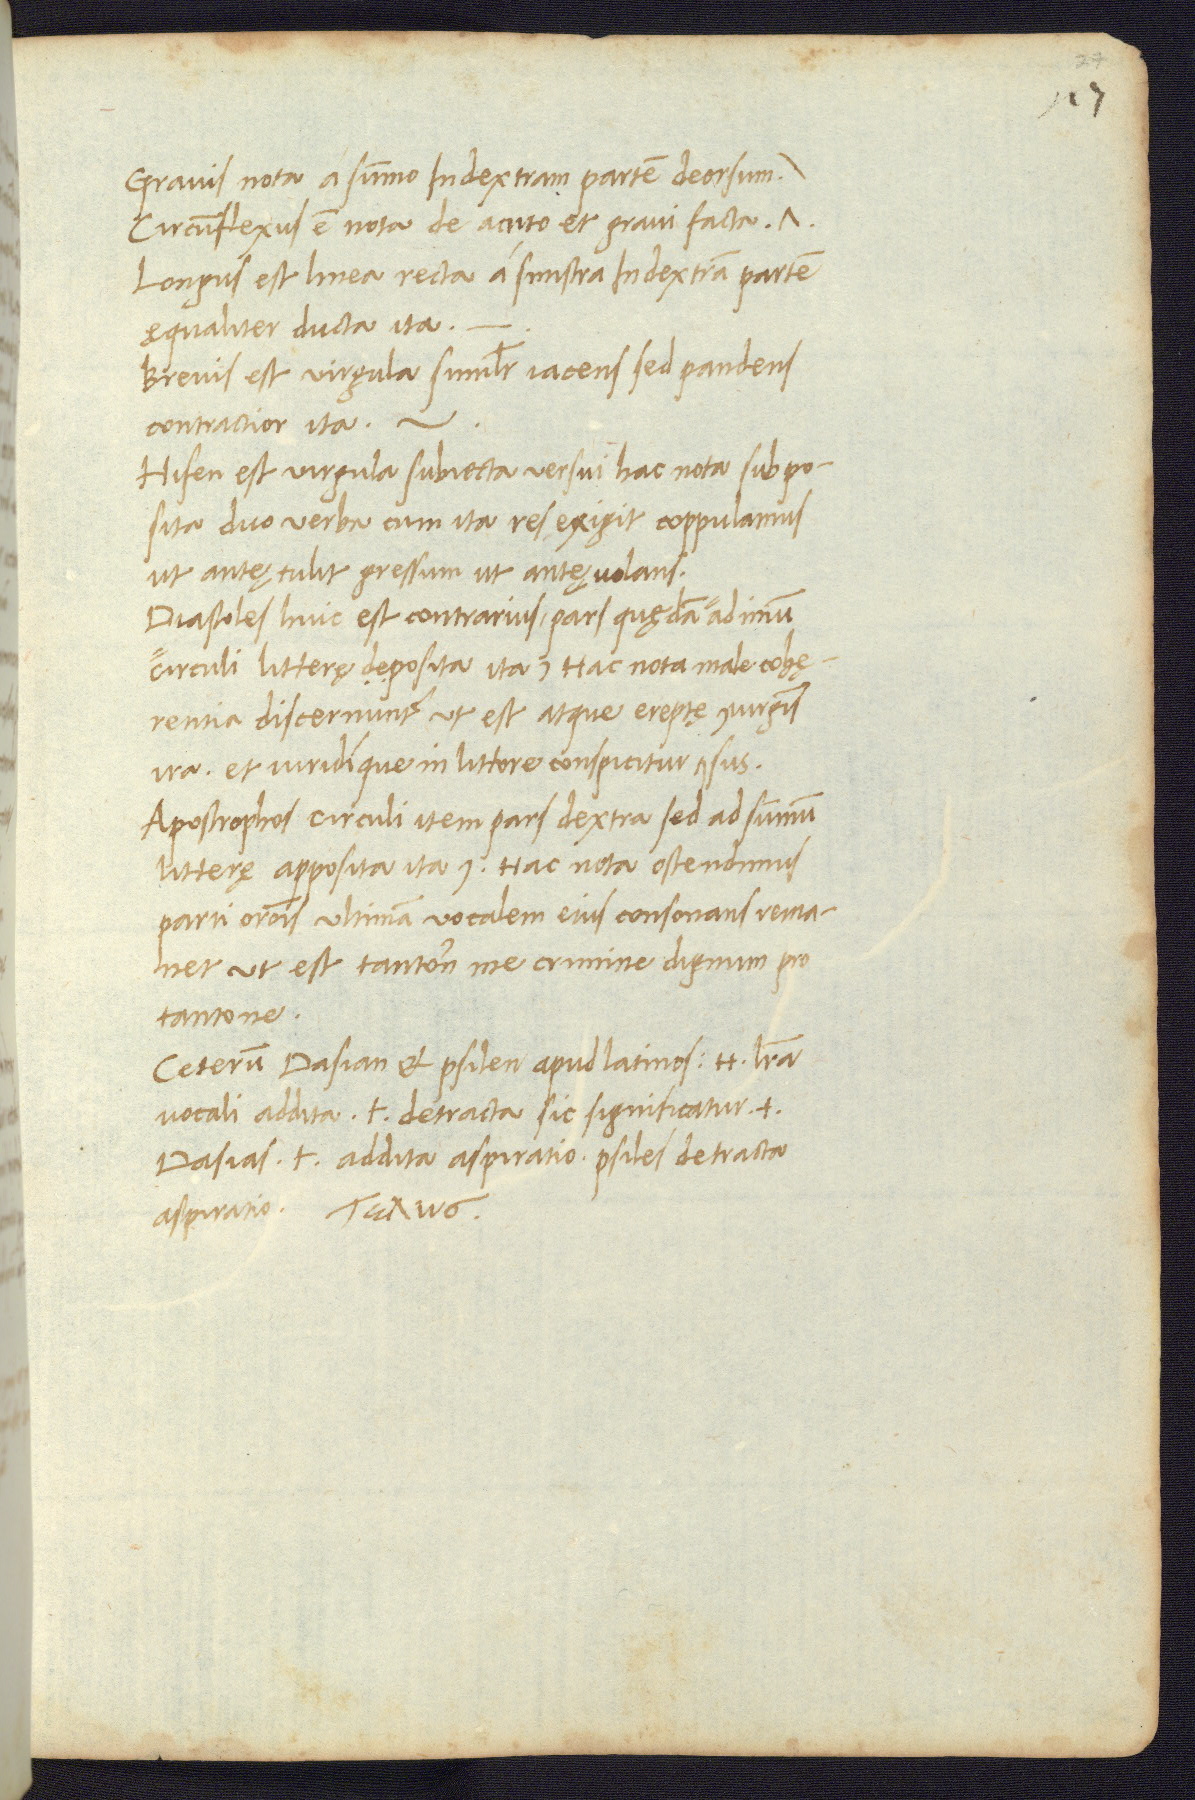 27
127
Grauis nota a sũmo Indextram partẽ deorsum. \
Circũflexus ẽ nota de acuto et graui facta . ʌ .
Longus est linea recta á sinistra Indextrã partẽ
ęqualiter ducta ita . — .
Breuis est virgula similr̃ iacens sed pandens
contractior ita . ‿ .
Hifen est virgula subiecta versui hac nota subpo-
sita duo verba cum ita res exigit coppulamus
ut antę tulit gressum ut antę uolans.
Diastoles huic est contrarius, pars quędã ad imũ
circuli litterę deposita ita ) Hac nota male cohę-
rentia discernunt᷑ ut est atque ereptę ) uirgĩs
ira . et uiridíque in littore conspicitur ) sus.
Apostrophos circuli item pars dextra sed ad sũmũ
litterę apposita ita ) . Hac nota ostendimus
parti orõis ultimã vocalem eius consonans rema-
net ut est tanto'n me crimine dignum pro
tantone .
Ceterũ Dasian & psilen apud latinos : H . lr̃a
vocali addita . Ⱶ . detracta sic significatur . ⱶ .
Dasias . Ⱶ . addita aspiratio . psiles detracta
aspiratio . Τελως .